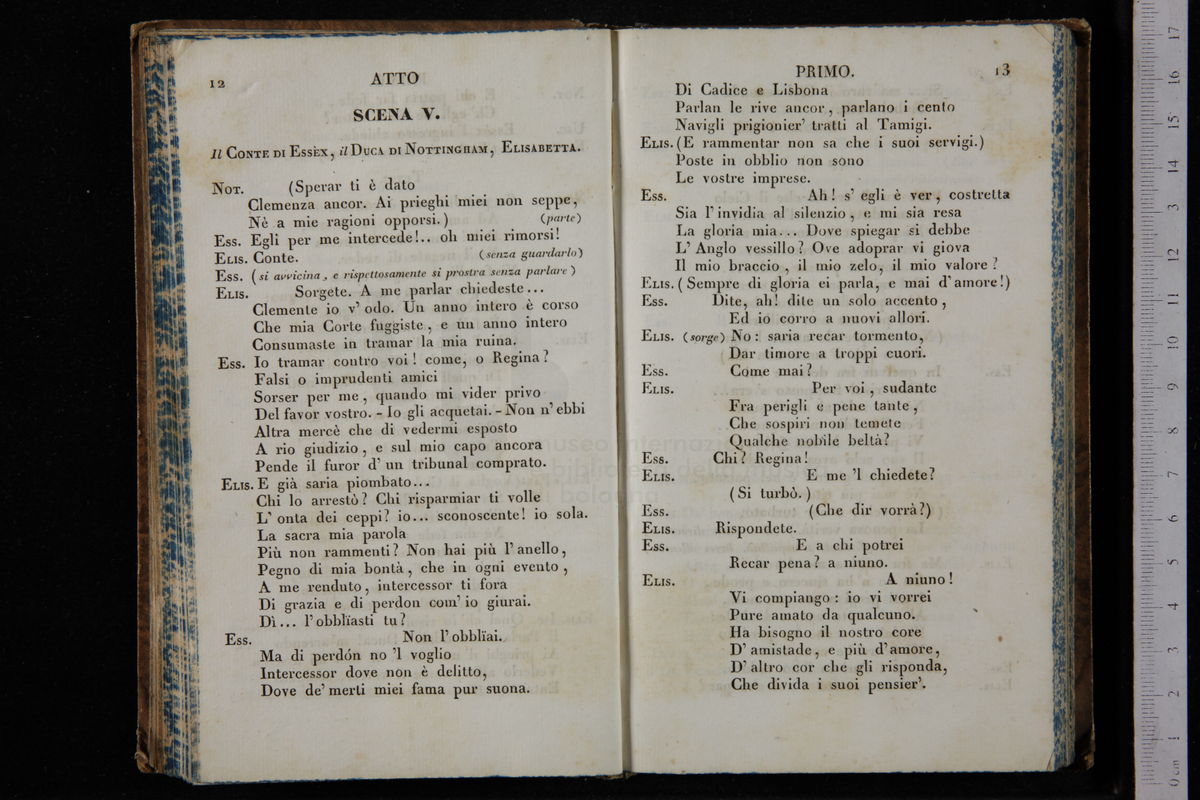 12
ATTO
SCENA V.
Il CONTE DI ESSÈX, il DUCA DI NOTTINGHAM, ELISABETTA.
NOT. (Sperar ti è dato
Clemenza ancor. Ai prieghi miei non seppe,
Nè a mie ragioni opporsi.) (parte)
Ess. Egli per me intercede!.. oh miei rimorsi!
ELIS. Conte. (senza guardarlo)
Ess. (si avvicina, e rispettosamente si prostra senza parlare)
ELIS. Sorgete. A me parlar chiedeste...
Clemente io v' odo. Un anno intero è corso
Che mia Corte fuggiste, e un anno intero
Consumaste in tramar la mia ruina.
Ess. Io tramar contro voi! come, o Regina?
Falsi o imprudenti amici
Sorser per me, quando mi vider privo
Del favor vostro. - Io gli acquetai. - Non n' ebbi
Altra mercè che di vedermi esposto
A rio giudizio, e sul mio capo ancora
Pende il furor d' un tribunal comprato.
ELIS. E già saria piombato...
Chi lo arrestò? Chi risparmiar ti volle
L' onta dei ceppi? io... sconoscente! io sola.
La sacra mia parola
Più non rammenti? Non hai più l' anello,
Pegno di mia bontà, che in ogni evento,
A me renduto, intercessor ti fora
Di grazia e di perdon com' io giurai.
Dì... l' obblïasti tu?
Ess. Non l' obblïai.
Ma di perdón no 'l voglio
Intercessor dove non è delitto,
Dove de' merti miei fama pur suona.
PRIMO. 13
Di Cadice e Lisbona
Parlan le rive ancor, parlano i cento
Navigli prigionier' tratti al Tamigi.
ELIS. (E rammentar non sa che i suoi servigi.)
Poste in obblio non sono
Le vostre imprese.
Ess. Ah! s' egli è ver, costretta
Sia l' invidia al silenzio, e mi sia resa
La gloria mia... Dove spiegar si debbe
L' Anglo vessillo? Ove adoprar vi giova
Il mio braccio, il mio zelo, il mio valore?
ELIS. (Sempre di gloria ei parla, e mai d'amore!)
Ess. Dite, ah! dite un solo accento,
Ed io corro a nuovi allori.
ELIS. (sorge) No: saria recar tormento,
Dar timore a troppi cuori.
Ess. Come mai?
ELIS. Per voi, sudante
Fra perigli e pene tante,
Che sospiri non temete
Qualche nobile beltà?
Ess. Chi? Regina!
ELIS. E me 'l chiedete?
(Si turbò.)
Ess. (Che dir vorrà?)
ELIS. Rispondete.
Ess. E a chi potrei
Recar pena? a niuno.
ELIS. A niuno!
Vi compiango: io vi vorrei
Pure amato da qualcuno.
Ha bisogno il nostro core
D' amistade, e più d'amore,
D' altro cor che gli risponda,
Che divida i suoi pensier'.